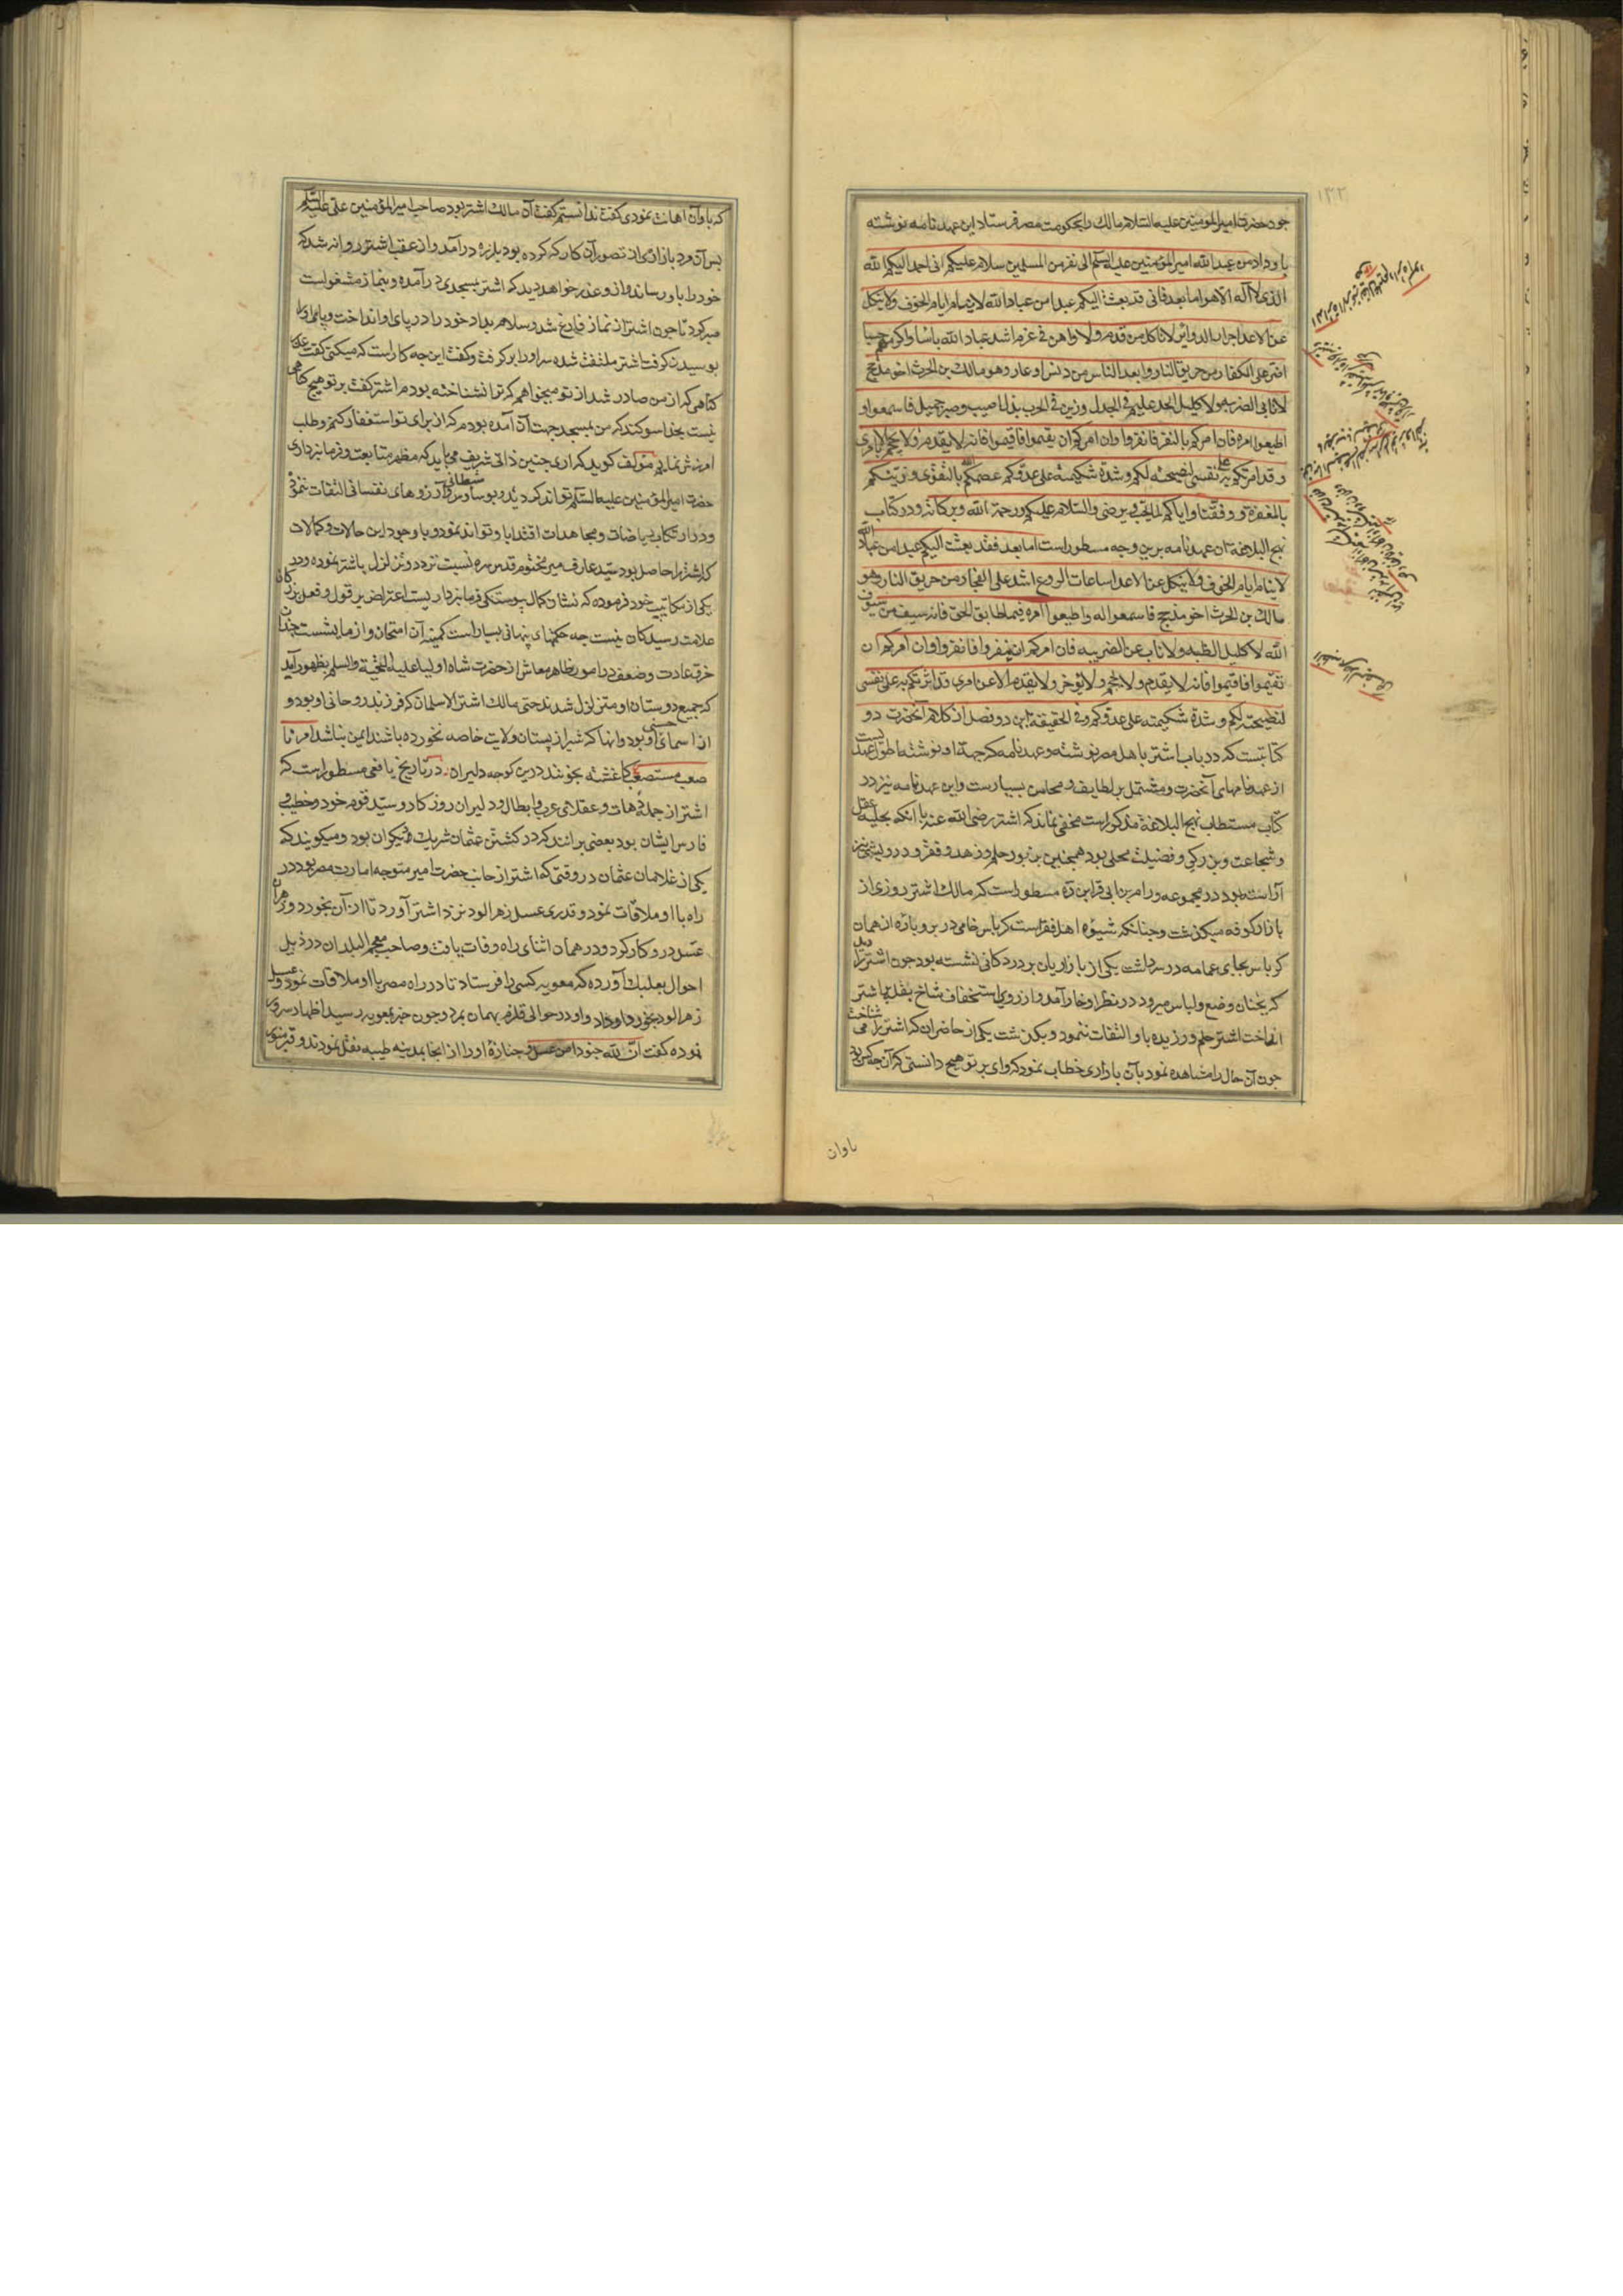 چون حضرت امیرالمؤمنین علیه السلام مالک را بحکومت مصر فرستاد این عهدنامه نوشته
باو داد من عبدالله امیرالمؤمنین علیه السلم الی نفر من المسلمین سلام علیکم انی احمد الیکم الله
الذی لا اله الا هو اما بعد فانی قد بعثت الیکم عبدا من عبادالله لا ینام ایام الخوف ولا ینکل
عن الاعدا حذار الدوائر لا ناکل من قدم ولا واهن فی عزم اشد عبادالله باسا واکرمهم حسبا
اضر علی الکفار من حریق النار وابعد الناس من دنس او عار وهو مالک بن الحرث اخو مذحج
لا نابی الضریبه ولا کلیل الحد علیم فی الجدل ورزین فی الحرب صبر جمیل فاسمعوا و
اطیعوا امره فان امرکم بالنفر فانفروا وان امرکم ان یقیموا فاقیموا فانه لا یقدم ولا یحجم الا بامری
وقد اثرتکم به علی نفسی لنصیحته لکم وشدة شکیمته علی عدوکم عصمکم الله بالتقوی وزینکم
بالمغفرة ووفقنا وایاکم لما یحب ویرضی والسلام علیکم ورحمة الله وبرکاته ودر کتاب
نهج البلاغه آن عهدنامه برین وجه مسطور است اما بعد فقد بعثت الیکم عبدا من عبادالله
لا ینام ایام الخوف ولا ینکل عن الاعدا ساعات الروع اشد علی الفجار من حریق النار وهو
مالک بن الحرث اخو مذحج فاسمعوا له واطیعوا امره فیما طابق الحق فانه سیف من سیوف
الله لا کلیل الظبه ولا ناب عن الضریبه فان امرکم ان ینفروا فانفروا وان امرکم ان
تقیموا فاقیموا فانه لا یقدم ولا یحجم ولا یؤخر ولا یقدم الا عن امری قد اثرتکم به علی نفسی
لنصیحته لکم وشدة شکیمته علی عدوکم وفی الحقیقه این دو فصل از کلام آنحضرت دو
کتابتست که در باب اشتر باهل مصر نوشته وعهدنامه که جهة او نوشته اطول عهدیست
از عهدنامهای آنحضرت ومشتمل بر لطایف ومحاسن بسیارست واین عهدنامه نیز در
کتاب مستطاب نهج البلاغة مذکور است مخفی نماند که اشتر رضی الله عنه با آنکه بحلیه عقل
وشجاعت وبزرگی وفضیلت محلی بود همچنین بزیور حلم وزهد وفقر ودرویشی نیز
آراسته بود در مجموعه ورام بن ابی فراس ره مسطور است که مالک اشتر روزی از
بازار کوفه میگذشت وچنانکه شیوه اهل فقر است کرباس خامی در بر وپاره از همان
کرباس بجای عمامه در سر داشت یکی از بازاریان بر در دکانی نشسته بود چون اشتر را دید
که بچنان وضع ولباس میرود در نظر او خار آمد واز روی استخفاف شاخ بقلی باشتر
انداخت اشتر حلم ورزیده باو التفات ننمود وبگذشت یکی از حاضران که اشتر را می شناخت
چون آن حال را مشاهده نمود بآن بازاری خطاب نمود که وای بر تو هیچ دانستی که آن چه کس بود
باوان
که باو آن اهانت نمودی گفت ندانستم گفت آن مالک اشتر بود صاحب امیرالمؤمنین علی علیه السلم
پس آن مرد بازاری از تصور آن کار که کرده بود بلرزه درآمد واز عقب اشتر روانه شد که
خود را باو رساند وازو عذر خواهد دید که اشتر بمسجدی درآمده وبنماز مشغول است
صبر کرد تا چون اشتر از نماز فارغ شد وسلام بداد خود را در پای او انداخت وپایهای او
بوسیدن گرفت اشتر ملتفت شده سر او را برگرفت وگفت این چه کار است که میکنی گفت عذر
گناهی که از من صادر شد از تو میخواهم که ترا نشناخته بودم اشتر گفت بر تو هیچ گناهی
نیست بخدا سوگند که من بمسجد جهت آن آمده بودم که از برای تو استغفار کنم وطلب
امرزش نمایم مؤلف گوید که آری چنین ذاتی شریف می باید که مظهر متابعت وفرمانبرداری
حضرت امیرالمؤمنین علیه السلم تواند گردید وبوساوس شیطانی وآرزوهای نفسانی التفات ننموده
ودر ارتکاب ریاضات ومجاهدات اقتدا باو تواند نمود وباوجود این حالات وکمالات
که اشتر را حاصل بود سید عارف میر مختوم قدس سره نسبت تردد وتزلزل باشتر نموده ودر
یکی از مکاتیب خود فرموده که نشان کمال پیوستگی فرمانبرداریست اعتراض بر قول وفعل بزرگان
علامت رسیدگان نیست چه حکمتهای پنهانی بسیار است کمینه آن امتحان وازمایشست چندان
خرق عادت وضعف در امور ظاهر معاش از حضرت شاه اولیا علیه التحیة والسلم بظهور آمد
که جمیع دوستان او متزلزل شدند حتی مالک اشتر الا سلمان که فرزند روحانی او بود و
از اسمای حسنی او بود وانها که شیر از پستان ولایت خاصه نخورده باشند ایمن نباشد امرنا
صعب مستصعب کاغشته بخونند درین کوچه دلیران در تاریخ یافعی مسطور است که
اشتر از جمله دهات وعقلای عرب وابطال ودلیران روزگار وسید قوم خود وخطیب و
فارس ایشان بود بعضی برانند که در کشتن عثمان شریک دیگران بود ومیگویند که
یکی از غلامان عثمان در وقتی که اشتر از جانب حضرت امیر متوجه امارت مصر بود در
راه با او ملاقات نمود وقدری عسل زهرالود نزد اشتر آورد تا از آن بخورد وزهران
عسل درو کار کرد ودر همان اثنای راه وفات یافت وصاحب معجم البلدان در ذیل
احوال بعلبک آورده که معویه کسی را فرستاد تا در راه مصر با او ملاقات نمود وعسل
زهرالود بخورد او داد واو در حوالی قلزم بهمان بمرد وچون خبر بمعویه رسید اظهار سرور
نموده گفت ان لله جنودا من عسل وجنازه او را از انجا بمدینه طیبه نقل نمودند وقبر منور